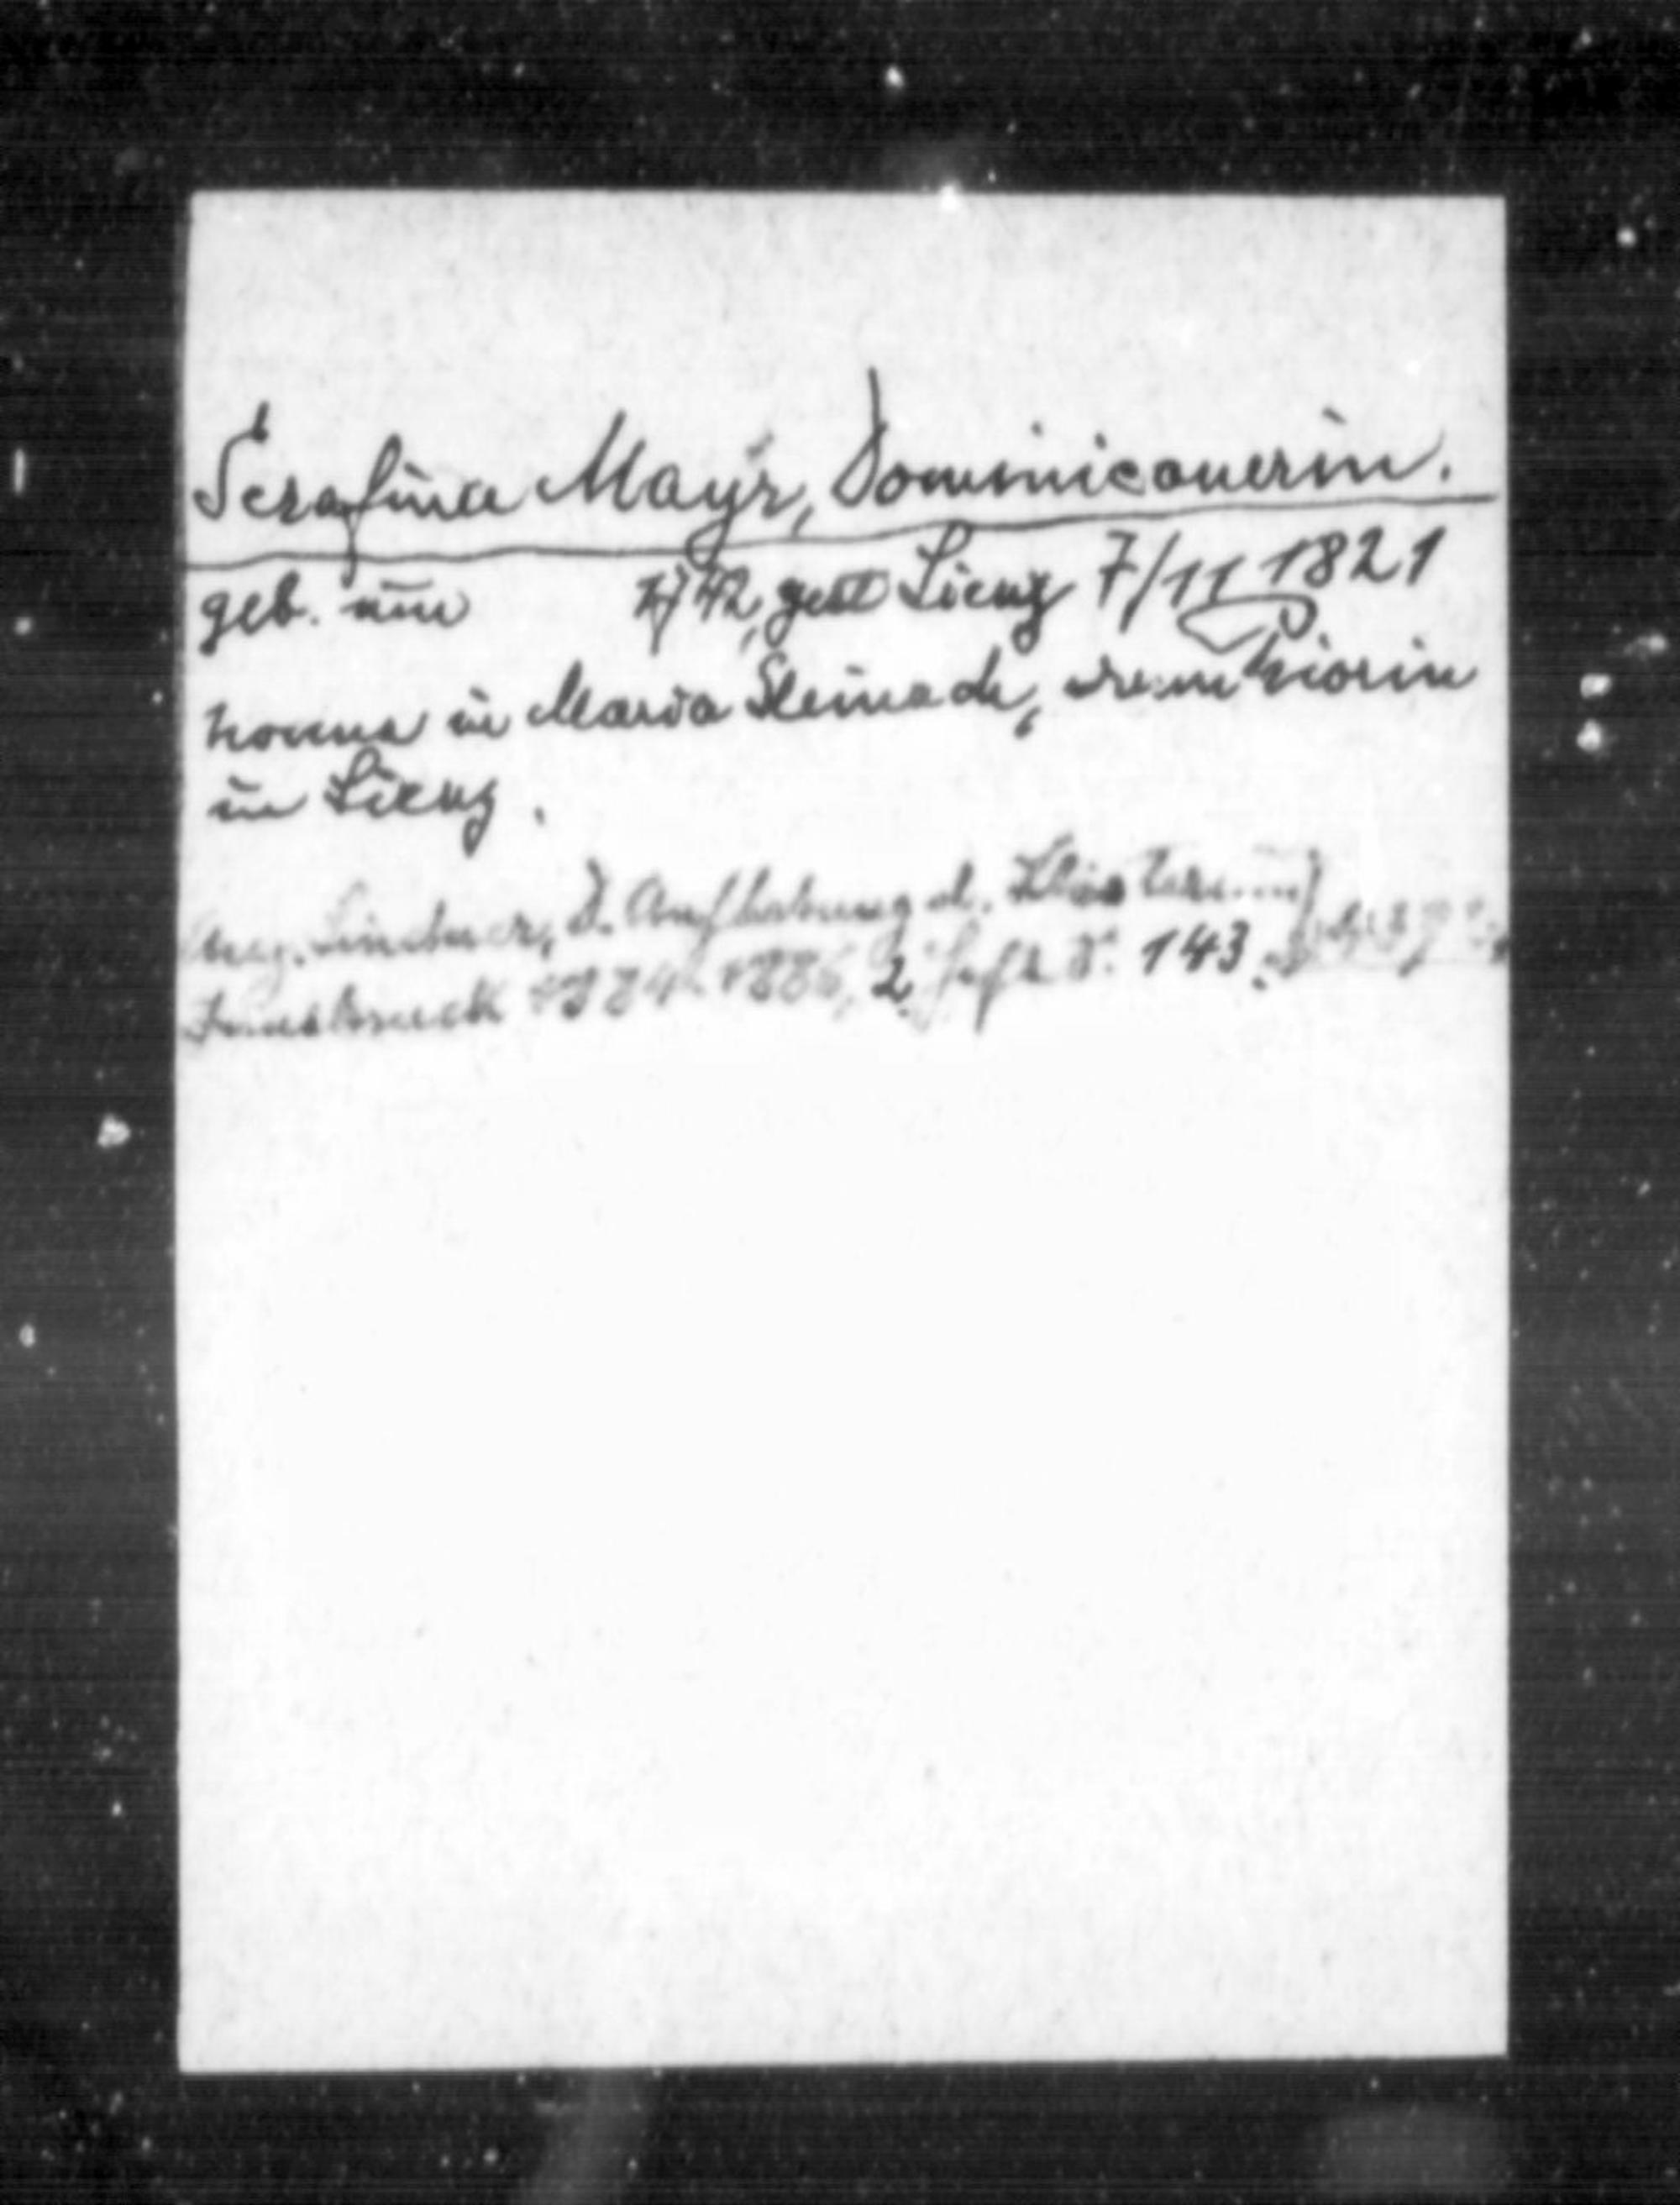 Serafina Mayr, Dominicanerin.
geb. um 1742, gest Lienz 7/11 1821
Nonne in Maria Steinach, dann Priorin
in Lienz.
Aug. Lindner, D. Aufhebung d. Klöster
Innsbruck 1884-1886, 2. Heft S. 143.